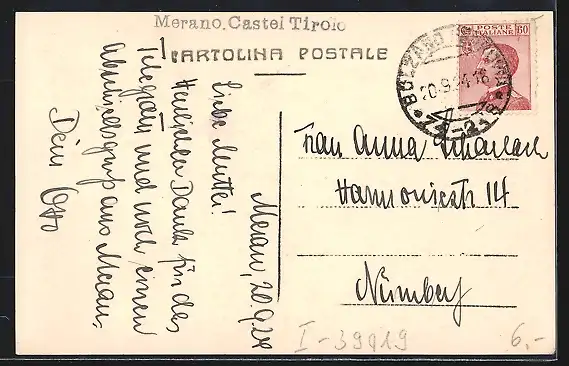 Merano. Castel Tirolo
CARTOLINA POSTALE
Meran, 20.9.24
Liebe Mutter!
Herzlichen Dank für das
Telegram und noch einen
Abschiedsgruß aus Meran,
Dein Otto
POSTE
ITALIANE
60
BOLZANO
20.9.24.18
Frau Anna
14
Nürnberg
I-39919
6.-